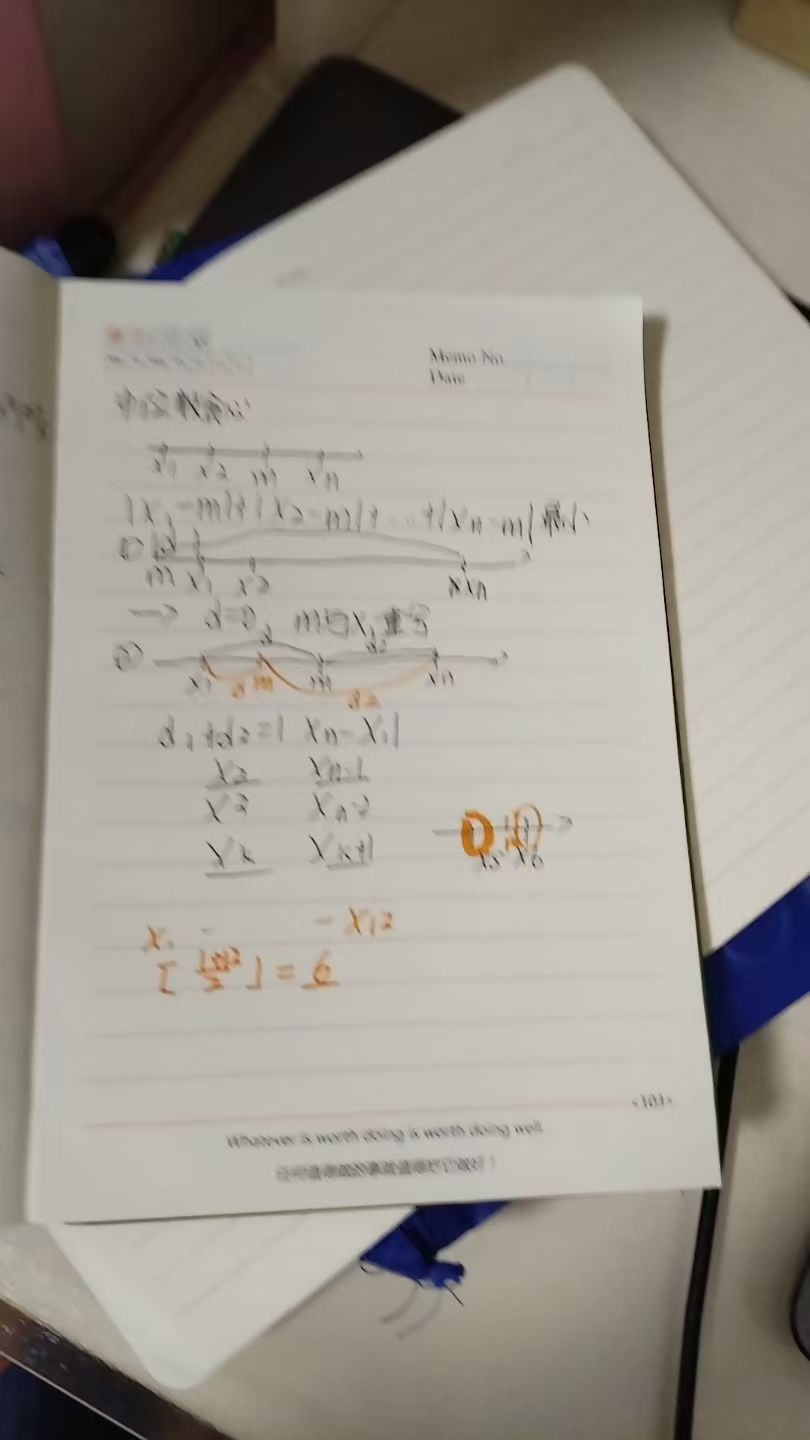 Memo No.
Date
中位数定心
x1 x2 m xn
|x1-m|+|x2-m|+...+|xn-m| 最小
①
m x1 x2 xn
→ d=0, m与x1重合
②
x1 d m m xn
d2
d1+d2=|xn-x1|
x2 xn-1
x3 xn-2
xk xk+1
x5 x6
x1 - - x12
[ 1+12/2 ] = 6
<103>
Whatever is worth doing is worth doing well
任何值得做的事就值得把它做好！